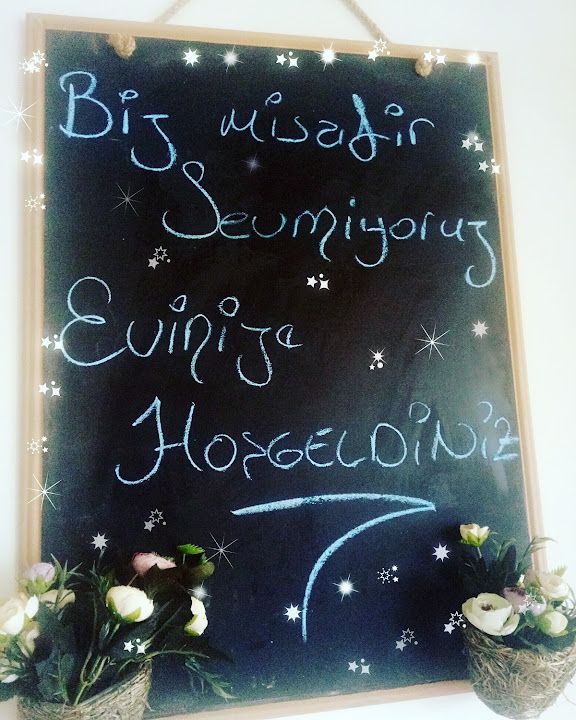 Biz misafir
Sevmiyoruz
Evinize
HOŞGELDİNİZ